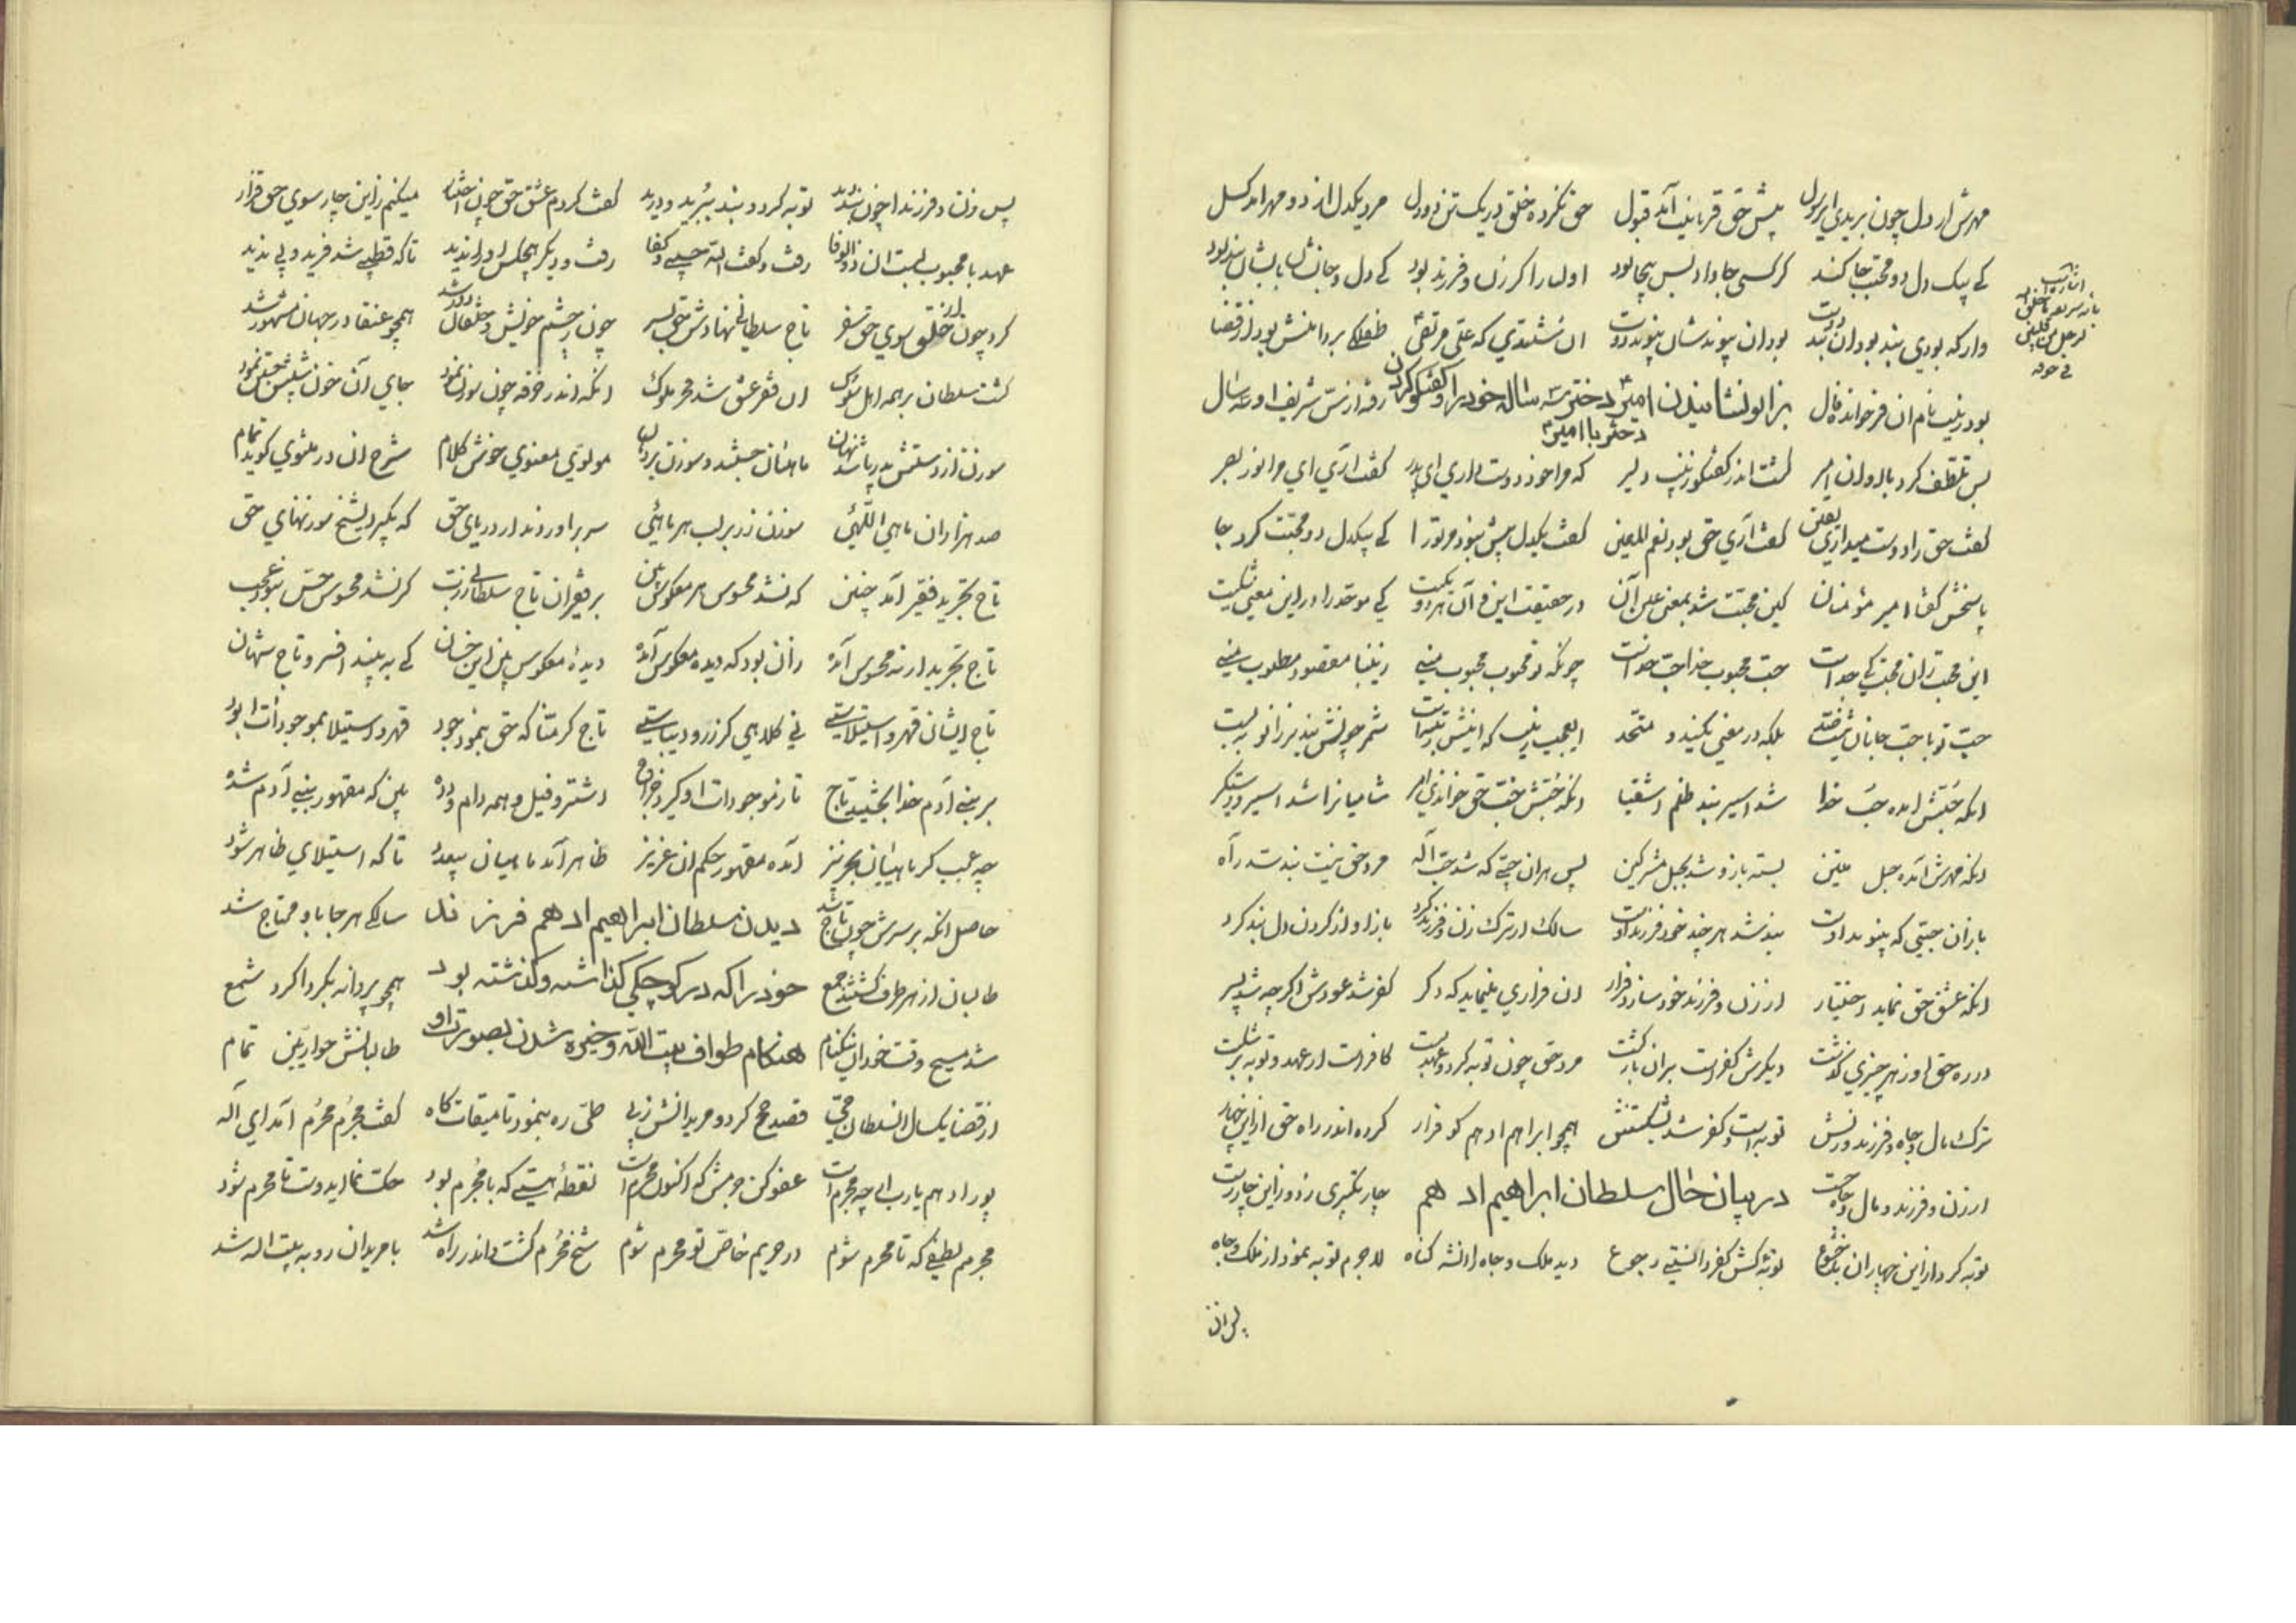 مهرش از دل چون بریدی ای رسول پیش حق قربانیت آمد قبول حق نکرده خلق در یکتن دو دل مرد یکدل از دو مهر آمد کسل
کے بیک دل دو محبت جا کند گر کسی جا داد بس بیجا بود اولیا را گر زن و فرزند بود کے دل و جانشان باشان بند بود
بود زینب نام آن فرخنده فال بزانو نشانیدن امیر دختر سه ساله خود را و گفتگو کردن رفته از سن شریف او سه سال
دختر با امیر
بس تلطف کرد با او آن امیر گشت اندر گفتگو زینب دلیر که مرا خود دوست داری ای پدر گفت آری ای مرا نور بصر
گفت حق را دوست میداری یقین گفت آری حق بود نعم المعین گفت یکدل بیش نبود مر ترا کے بیکدل دو محبت کرد جا
پاسخش گفتا امیر مؤمنان کین محبت شد بمعنی عین آن در حقیقت این و آن هر دو یکیست کے موحد را در این معنی شکیست
این محبت زان محبت کے جداست حب محبوب خدا حب خداست چونکه تو محبوب محبوب منے زینبا مقصود و مطلوب منے
حب تو با حب جانان بلکه در معنی یکیند و متحد
آنکه حبش آمده حب خدا شد اسیر بند ظلم اشقیا آنکه حبش حب حق خواندی امیر شامیانرا شد اسیر و دستگیر
آنکه مهرش آمده حبل متین بسته بازو شد بحبل مشرکین پس هر آن حبے که شد حب اله مرد حق نیست بند سد راه
باز آن حبی که پیوند اوست بند شد هر چند خود فرزند اوست سالک از ترک زن و فرزند کرد باز او از کردن دل بند کرد
آنکه عشق حق نماید اختیار از زن و فرزند خود سازد فرار آن فراری مینماید که دگر کفر شد عودش اگرچه شد پسر
در ره حق او ز هر چیزی گذشت دیگرش کفر است بر آن بازگشت مرد حق چون توبه کرد و عهد بست کافر است ار عهد و توبه بر شکست
ترک مال و جاه و فرزند و زنش توبه است و کفر شد بشکستنش همچو ابراهیم ادهم کو فرار کرده اندر راه حق از این چهار
از زن و فرزند و مال و جاه در بیان حال سلطان ابراهیم ادهم چار تکبیری زد و زین چار رست
توبه کرد از این چهار آن با خشوع توبه‌کش کفر دانستے رجوع دید ملک و جاه را نشه گناه لاجرم توبه نمود از ملک و جاه
پس زن و فرزند را چون بند دید توبه کرد و بند ببرید و درید گفت کردم عشق حق چون اختیار میکنم زاین چار سوی حق فرار
عهد با محبوب بست آن ذو الوفا رفت و گفت الله حسبے و کفا رفت و دیگر هیچکس او را ندید تا که قطبے شد فرید و بے ندید
کرد چون از خلق سوی حق سفر تاج سلطانے نهادش حق بسر چون ز چشم خویش و خلقان دور شد همچو عنقا در جهان مشهور شد
گشت سلطان بر همه اهل سلوک آن فقر عشق شد فخر ملوک آنکه اندر خرقه چون سوزن نمود جای آن
سوزن از دستش بدریا شد نهان ماهیان جستند و سوزن بر دهان مولوی معنوی خوش کلام شرح آن در مثنوی گوید تمام
صد هزاران ماهی اللهئی سوزن زر بر لب هر ماهئی سر برآوردند از دریای حق که بگیر ای شیخ سوزنهای حق
تاج تجرید فقیر آمد چنین که نشد محسوس هر معکوس بین بر فقیران تاج سلطانے ز رب گر نشد محسوس حس نبود عجب
تاج تجرید ار نه محسوس آمده زان بود که دیده معکوس آمده دیدهٔ معکوس بین این خسان کے به بیند افسر و تاج شهان
تاج ایشان قهر و استیلاستے نی کلاهی کز زر و دیباستے تاج کرمنا که حق بنمود جود قهر و استیلا بموجودات بود
بر بنے آدم خدا بخشید تاج تا ز موجودات او گیرد خراج اشتر و فیل و همه دام و دده بین که مقهور بنے آدم شده
چه عجب گر ماهیان بحر نیز آمده مقهور حکم آن عزیز ظاهر آمد ماهیان تا که استیلای ظاهر شود
حاصل آنکه بر سرش چون تاج شد دیدن سلطان ابراهیم ادهم فرزند سالکے هر جا باو محتاج شد
طالبان از هر طرف گشتند جمع خود را که در کوچکی گذاشته و گذشته بود همچو پروانه بگرداگرد شمع
شد مسیح وقت خود هنگام طواف بیت الله و خیره شدن بصورت او طالبانش حواریین تمام
از قضا یکسال آن سلطان حی قصد حج کرد و مریدانش ز پی طی ره بنمود تا میقات گاه گفت مجرم محرم آمد ای اله
پور ادهم یارب ار چه مجرم است عفو کن جرمش که اکنون محرم است نقطهٔ هستے که با مجرم بود حک نما ای دوست تا محرم شود
مجرمم لطفے که تا محرم شوم در حریم خاص تو محرم شوم شیخ محرم گشت و اندر راه شد با مریدان رو به بیت اله شد